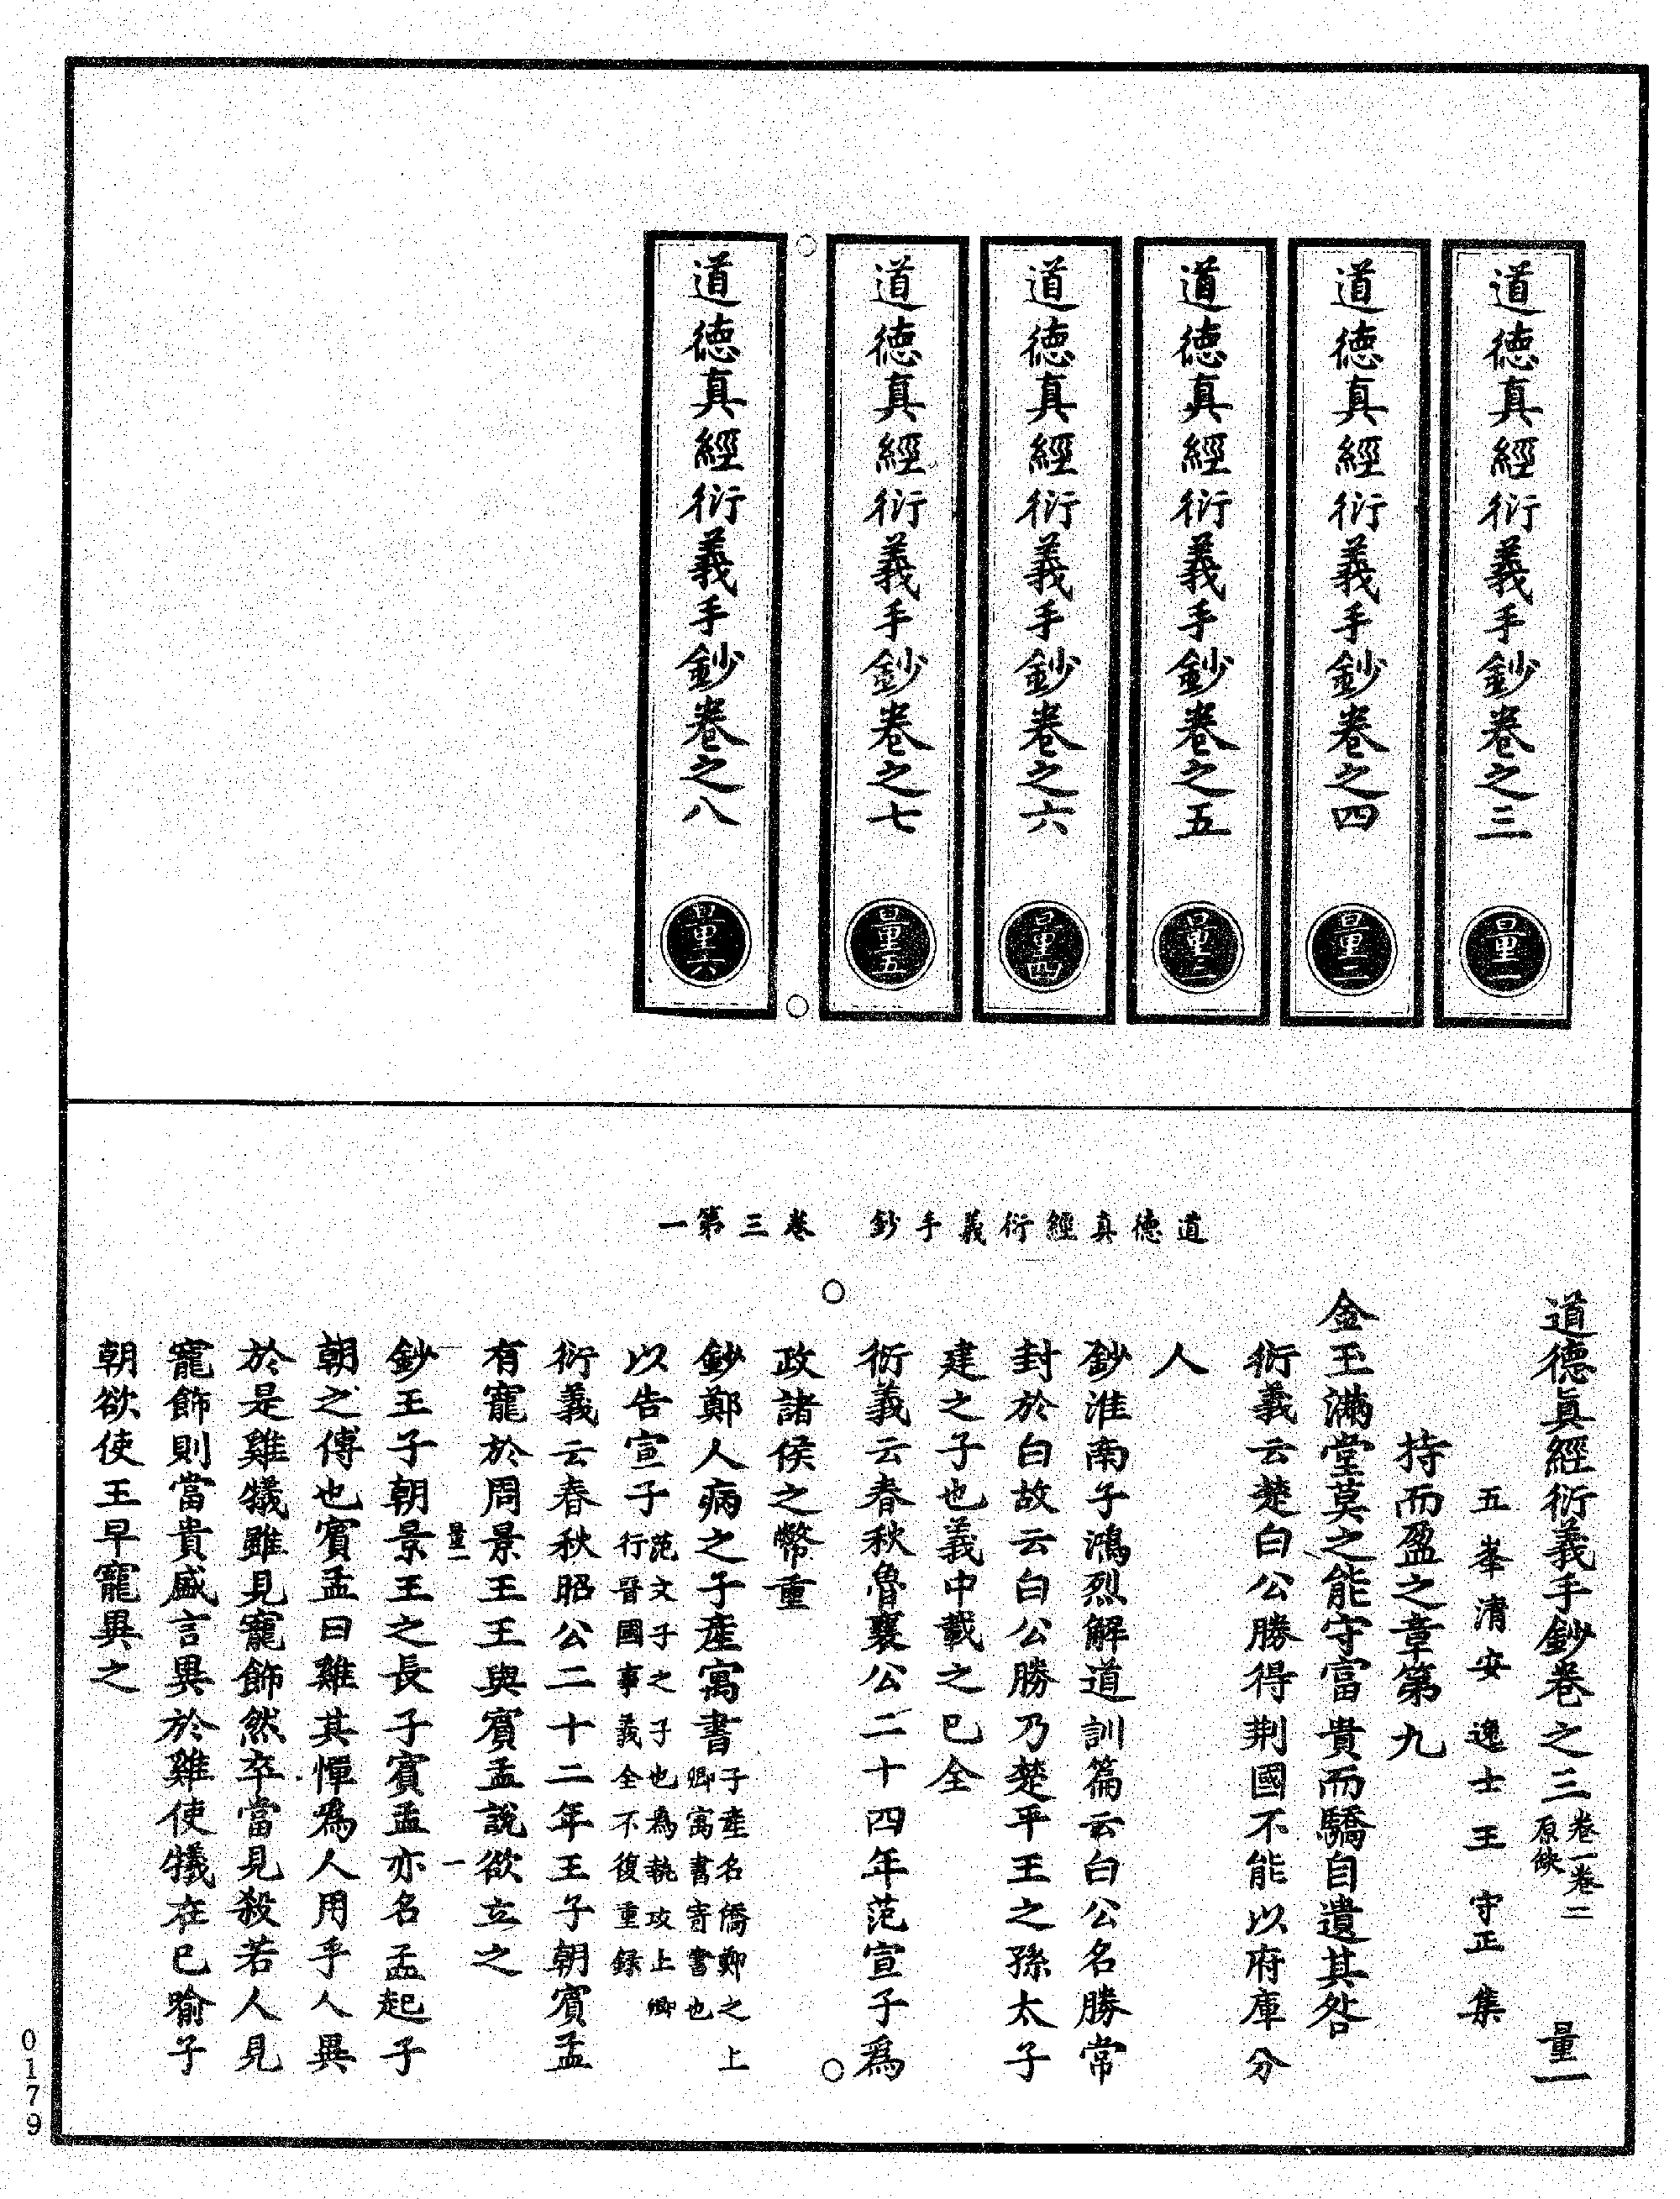 道德真經衍義手鈔卷之三
量一
道德真經衍義手鈔卷之四
量二
道德真經衍義手鈔卷之五
量三
道德真經衍義手鈔卷之六
量四
道德真經衍義手鈔卷之七
量五
道德真經衍義手鈔卷之八
量六
道德真經衍義手鈔　卷三第一
道德眞經衍義手鈔卷之三卷一卷二原缺　量一
五峯清安逸士王守正集
持而盈之章第九
金玉滿堂莫之能守富貴而驕自遺其咎
衍義云楚白公勝得荆國不能以府庫分
人
鈔淮南子鴻烈解道訓篇云白公名勝常
封於白故云白公勝乃楚平王之孫太子
建之子也義中載之已全
衍義云春秋魯襄公二十四年范宣子爲
政諸侯之幣重
鈔鄭人病之子產寓書子產名僑鄭之上卿寓書寄書也
以告宣子范文子之子也為執政上卿行晉國事義全不復重録
衍義云春秋昭公二十二年王子朝賓孟
有寵於周景王王與賓孟說欲立之
量一　一
鈔王子朝景王之長子賓孟亦名孟起子
朝之傅也賓孟曰雞其憚爲人用乎人異
於是雞犧雖見寵飾然卒當見殺若人見
寵飾則當貴盛言異於雞使犧在已喻子
朝欲使王早寵異之
0179